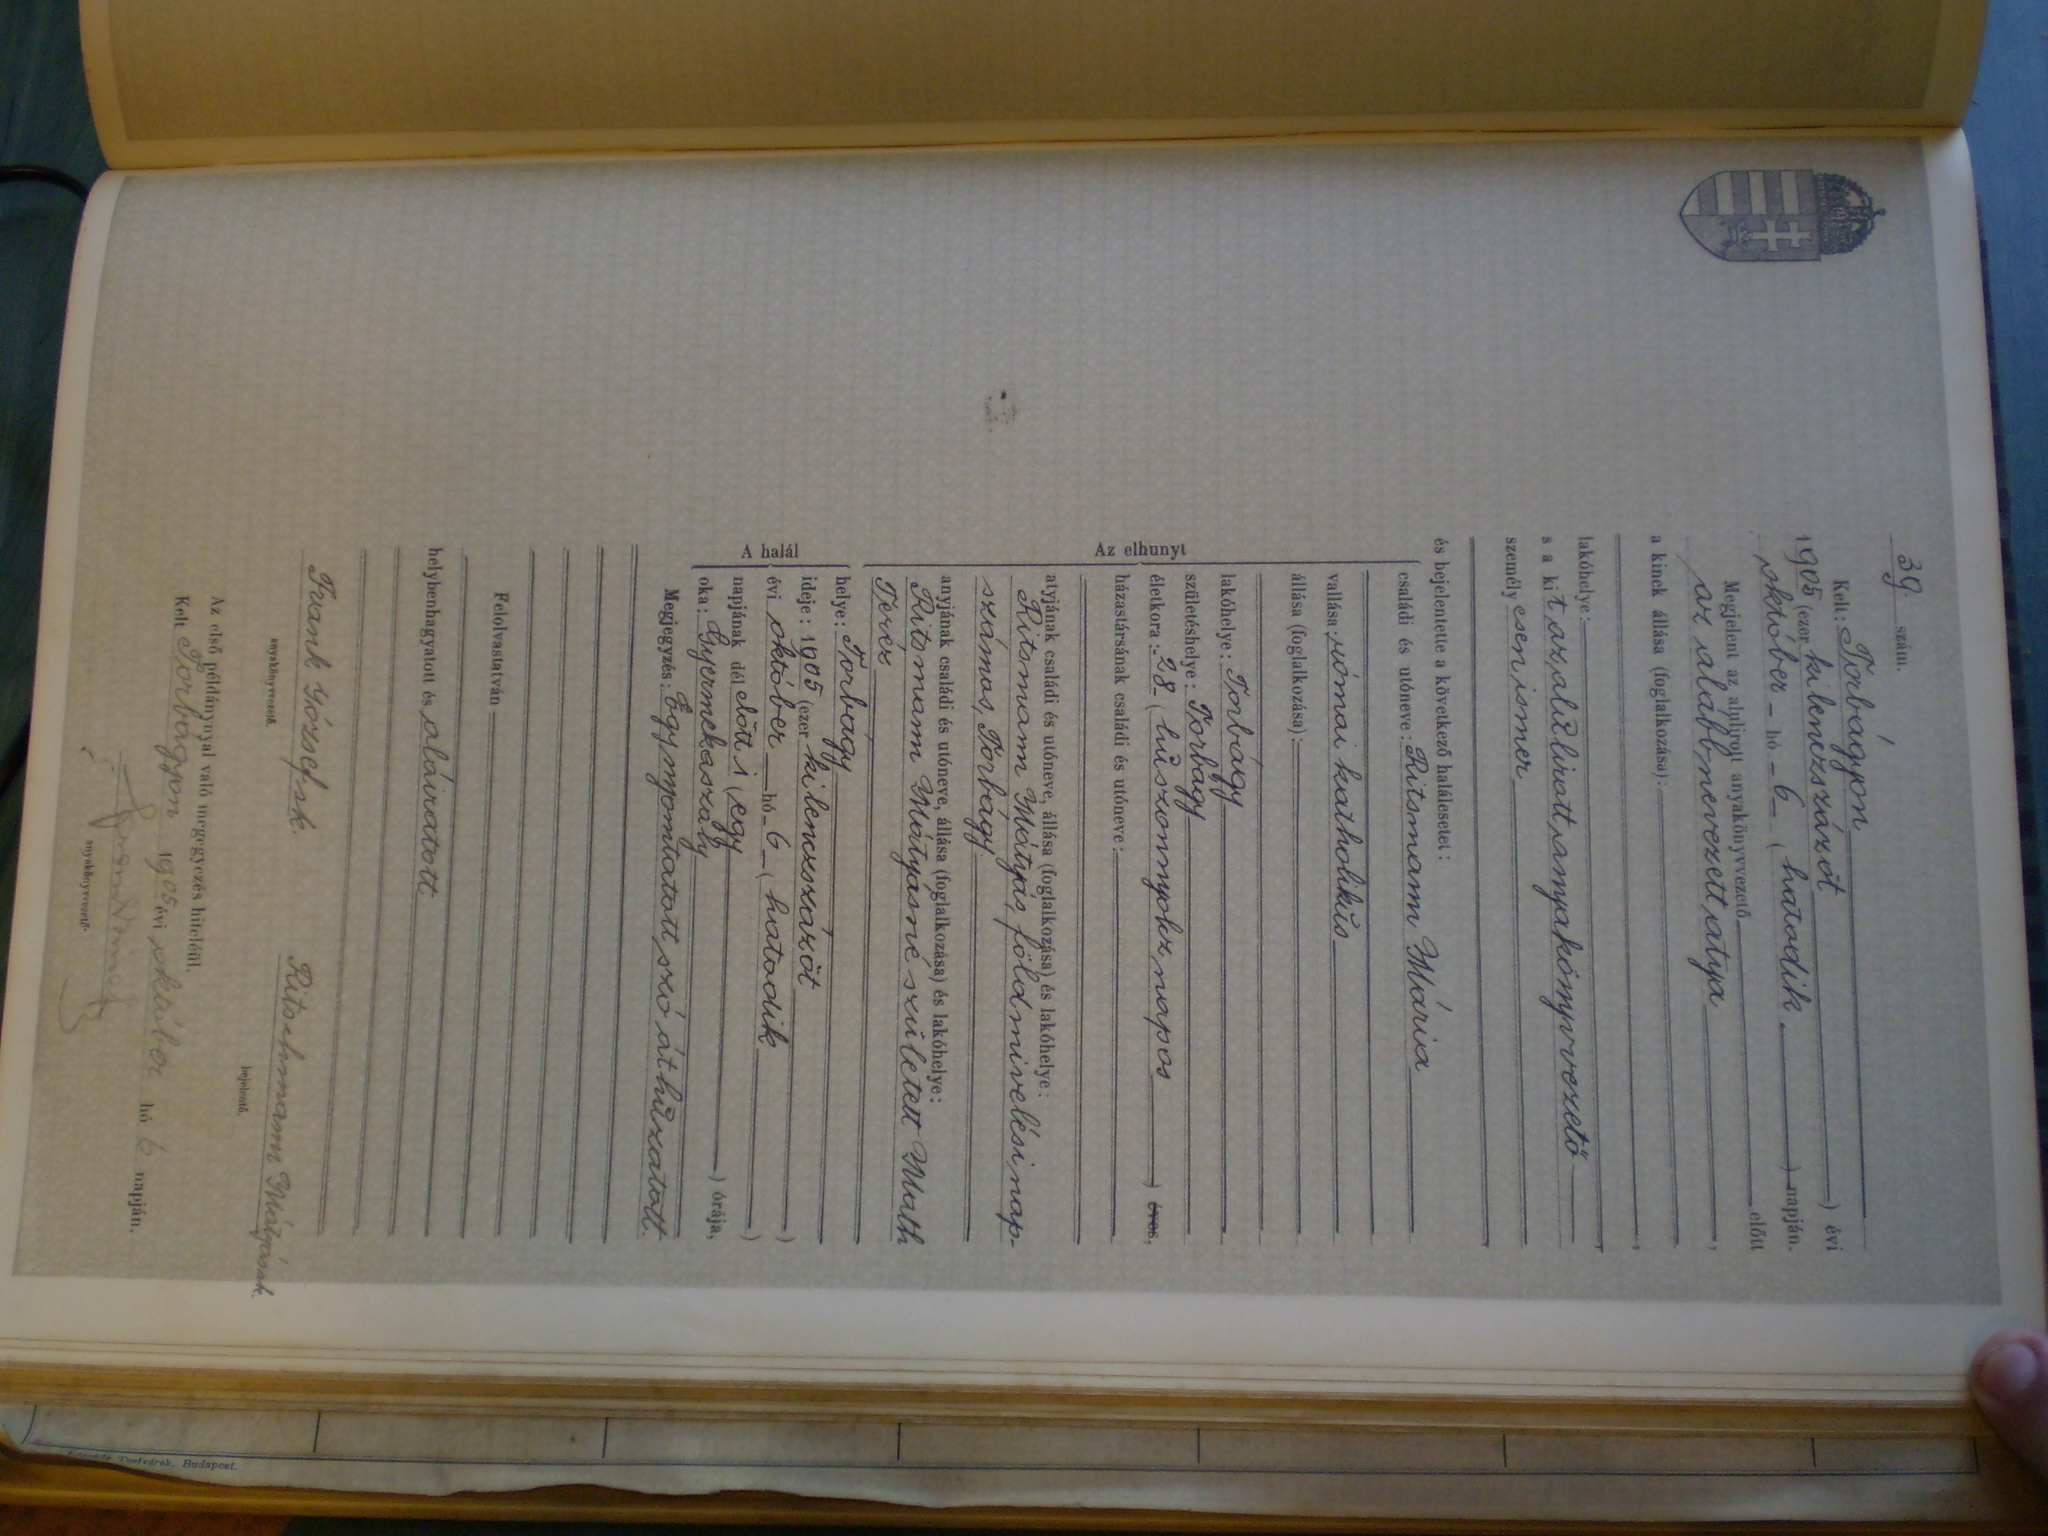 39. szám.
Kelt: Torbágyon
1905 (ezer kilenczszázöt ) évi
október – hó – 6 – ( hatodik ) napján.
Megjelent az alulirott anyakönyvvezető előtt
az alább nevezett atya ,
a kinek állása (foglalkozása):
,
lakóhelye: ,
s a kit az alulirott anyakönyvvezető
személyesen ismer
és bejelentette a következő halálesetet:
Az elhunyt
családi és utóneve: Ritsmann Mária
vallása: római katholikus
állása (foglalkozása):
lakóhelye: Torbágy
születéshelye: Torbágy
életkora: 28 – ( huszonnyolcz napos ) éves,
házastársának családi és utóneve:
atyjának családi és utóneve, állása (foglalkozása) és lakóhelye:
Ritsmann Mátyás, földmivelési nap-
számos, Torbágy
anyjának családi és utóneve, állása (foglalkozása) és lakóhelye:
Ritsmann Mátyásné született Math
Teréz
A halál
helye: Torbágy
ideje: 1905 (ezer kilenczszázöt )
évi október hó – 6 – ( hatodik )
napjának dél előtti ( egy ) órája,
oka: Gyermekaszály
Megjegyzés: Egy nyomtatott szó áthúzatott.
Felolvastatván
helybenhagyatott és aláiratott
Frank József sk. Ritschmann Mátyás sk.
anyakönyvvezető. bejelentő.
Az első példánynyal való megegyezés hiteléül.
Kelt Torbágyon 1905 évi október hó 6 napján.
anyakönyvvezető.
Testvérek, Budapest.